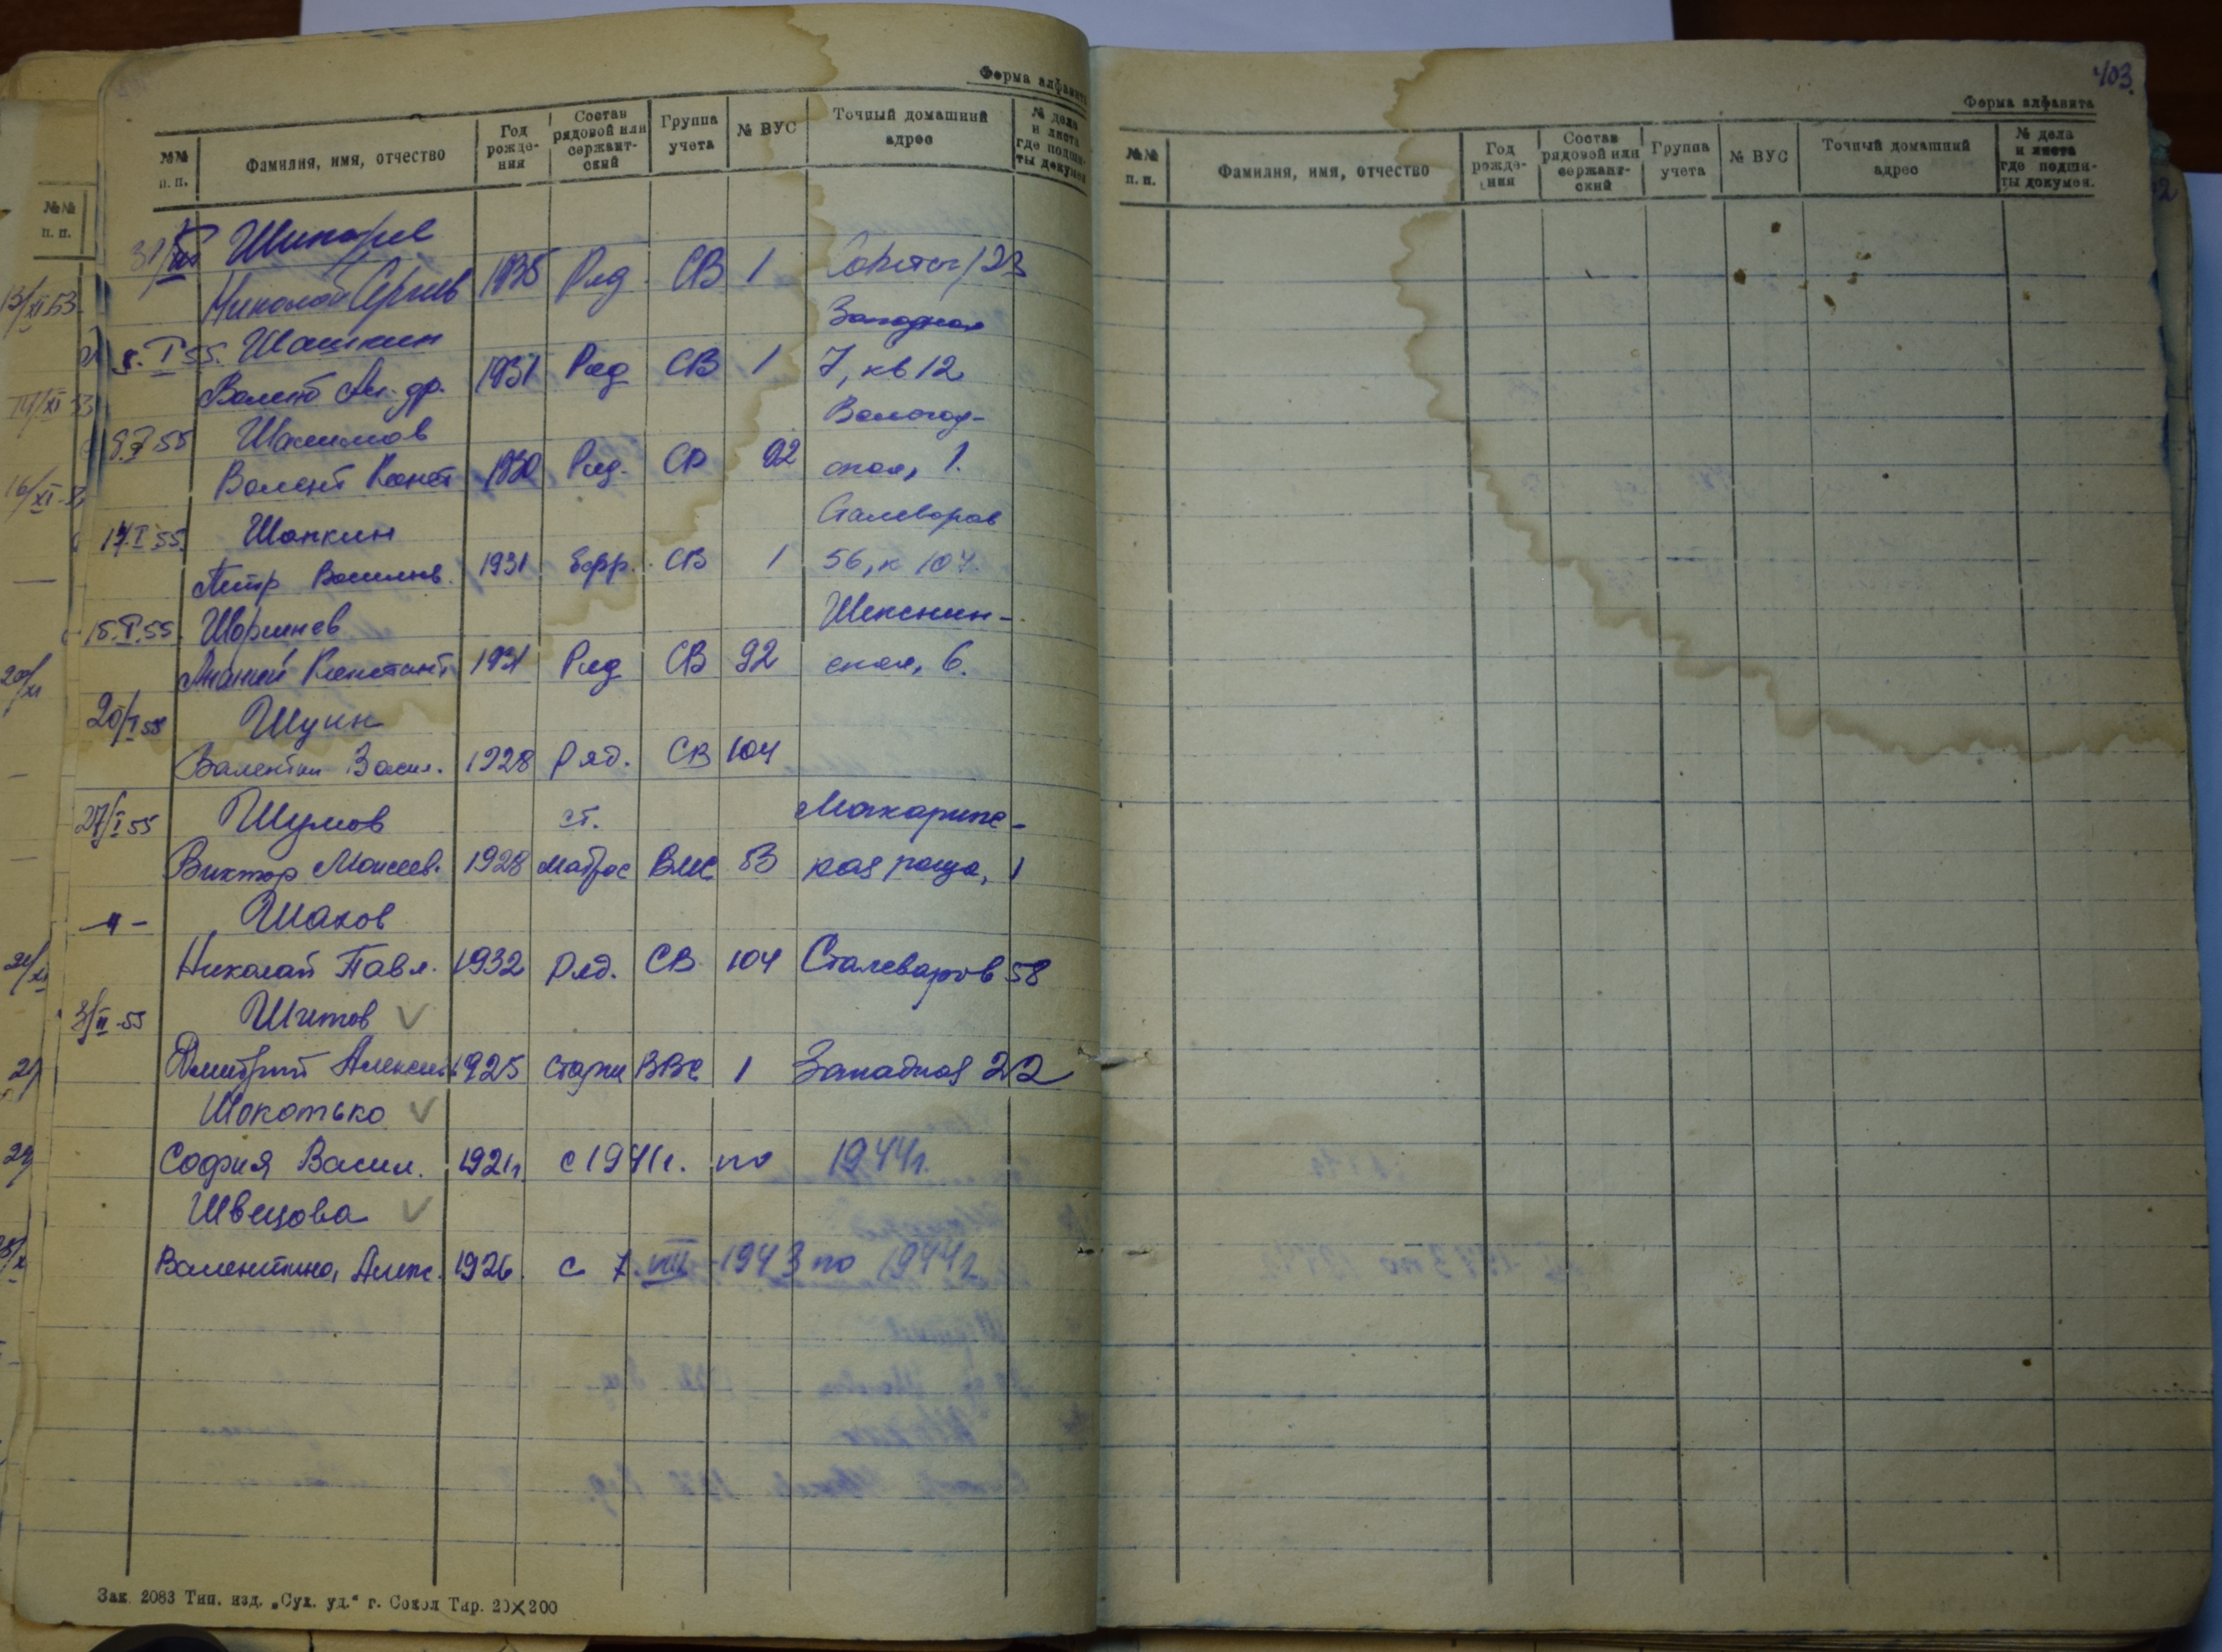 Форма алфавита
№№ п. п. Фамилия, имя, отчество Год рожде-ния Состав рядовой или сержант-ский Группа учета № ВУС Точный домашний адрес № дела и листа где подши-ты докумен.
Николай Сергеев 1935 Ряд СВ 1 123
Западная
8.I 55. Шашкин
1931 Ряд СВ 1 7, кв 12
Вологод-
55 Шалимов
Валент Конст 1930 Ряд. СВ 92 ская, 1.
Сталеваров
17.I 55. Шапкин
Петр Васильев. 1931 Ефр. СВ 1 56, к 104.
Шекснин-
15.I.55. Шоршнев
Ананий Констант 1931 Ряд СВ 92 ская, 6.
20/I 55 Шуин
Валентин Васил. 1928 Ряд. СВ 104
27/I 55 Шумов ст. Макаринс-
Виктор Моисеев. 1928 матрос ВМС 53 кая роща, 1
-"- Шахов
Николай Павл. 1932 Ряд. СВ 104 Сталеваров 58
3/II-55 Шитов √
Дмитрий Алексеев 1925 старш ВВС 1 Западная 22
Шокотько √
София Васил. 1921г. с 1941г. по 1944г.
Швецова √
Валентина, Алек. 1926. с 7. VIII-1943 по 1944г
Зак 2083 Тип. изд. „Сух. уд.“ г. Сокол Тир. 20×200
403.
Форма алфавита
№№ п. п. Фамилия, имя, отчество Год рожде-ния Состав рядовой или сержант-ский Группа учета № ВУС Точный домашний адрес № дела и листа где подши-ты докумен.
№№ п. п.
13/XI 53